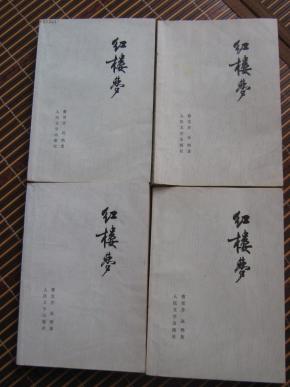 红楼梦
曹雪芹 高鹗著
人民文学出版社
红楼梦
曹雪芹 高鹗著
人民文学出版社
红楼梦
曹雪芹 高鹗著
人民文学出版社
红楼梦
曹雪芹 高鹗著
人民文学出版社